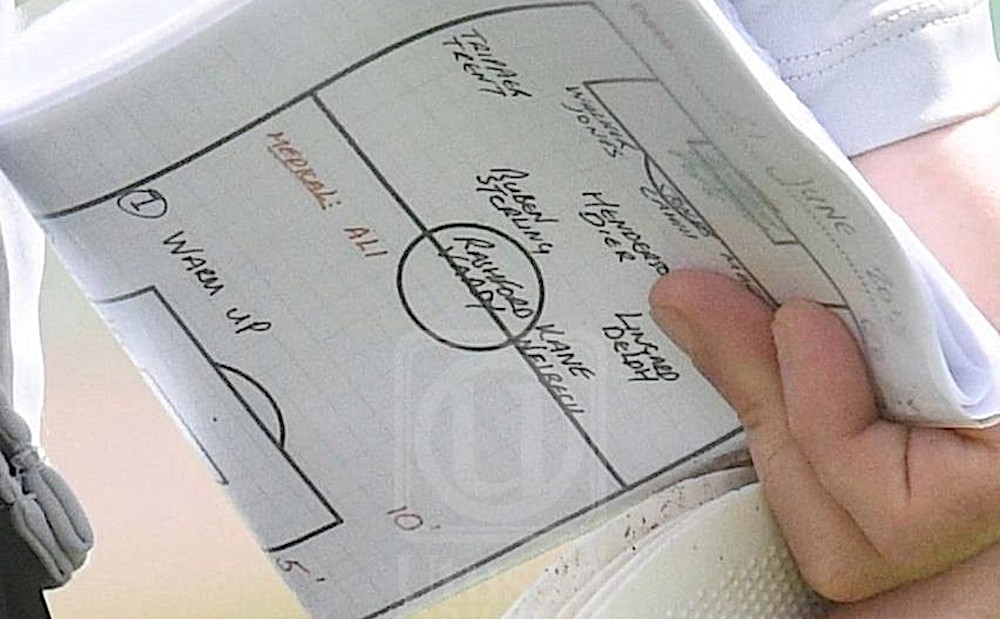 TRIPPIER
TRENT
WALKER
JONES
MEDICAL:
ALI
RUBEN
STERLING
HENDERSO
DIER
RASHFORD
VARDY
KANE
WELBECK
LINGARD
DELPH
1
WARM UP
JUNE
10'
5'